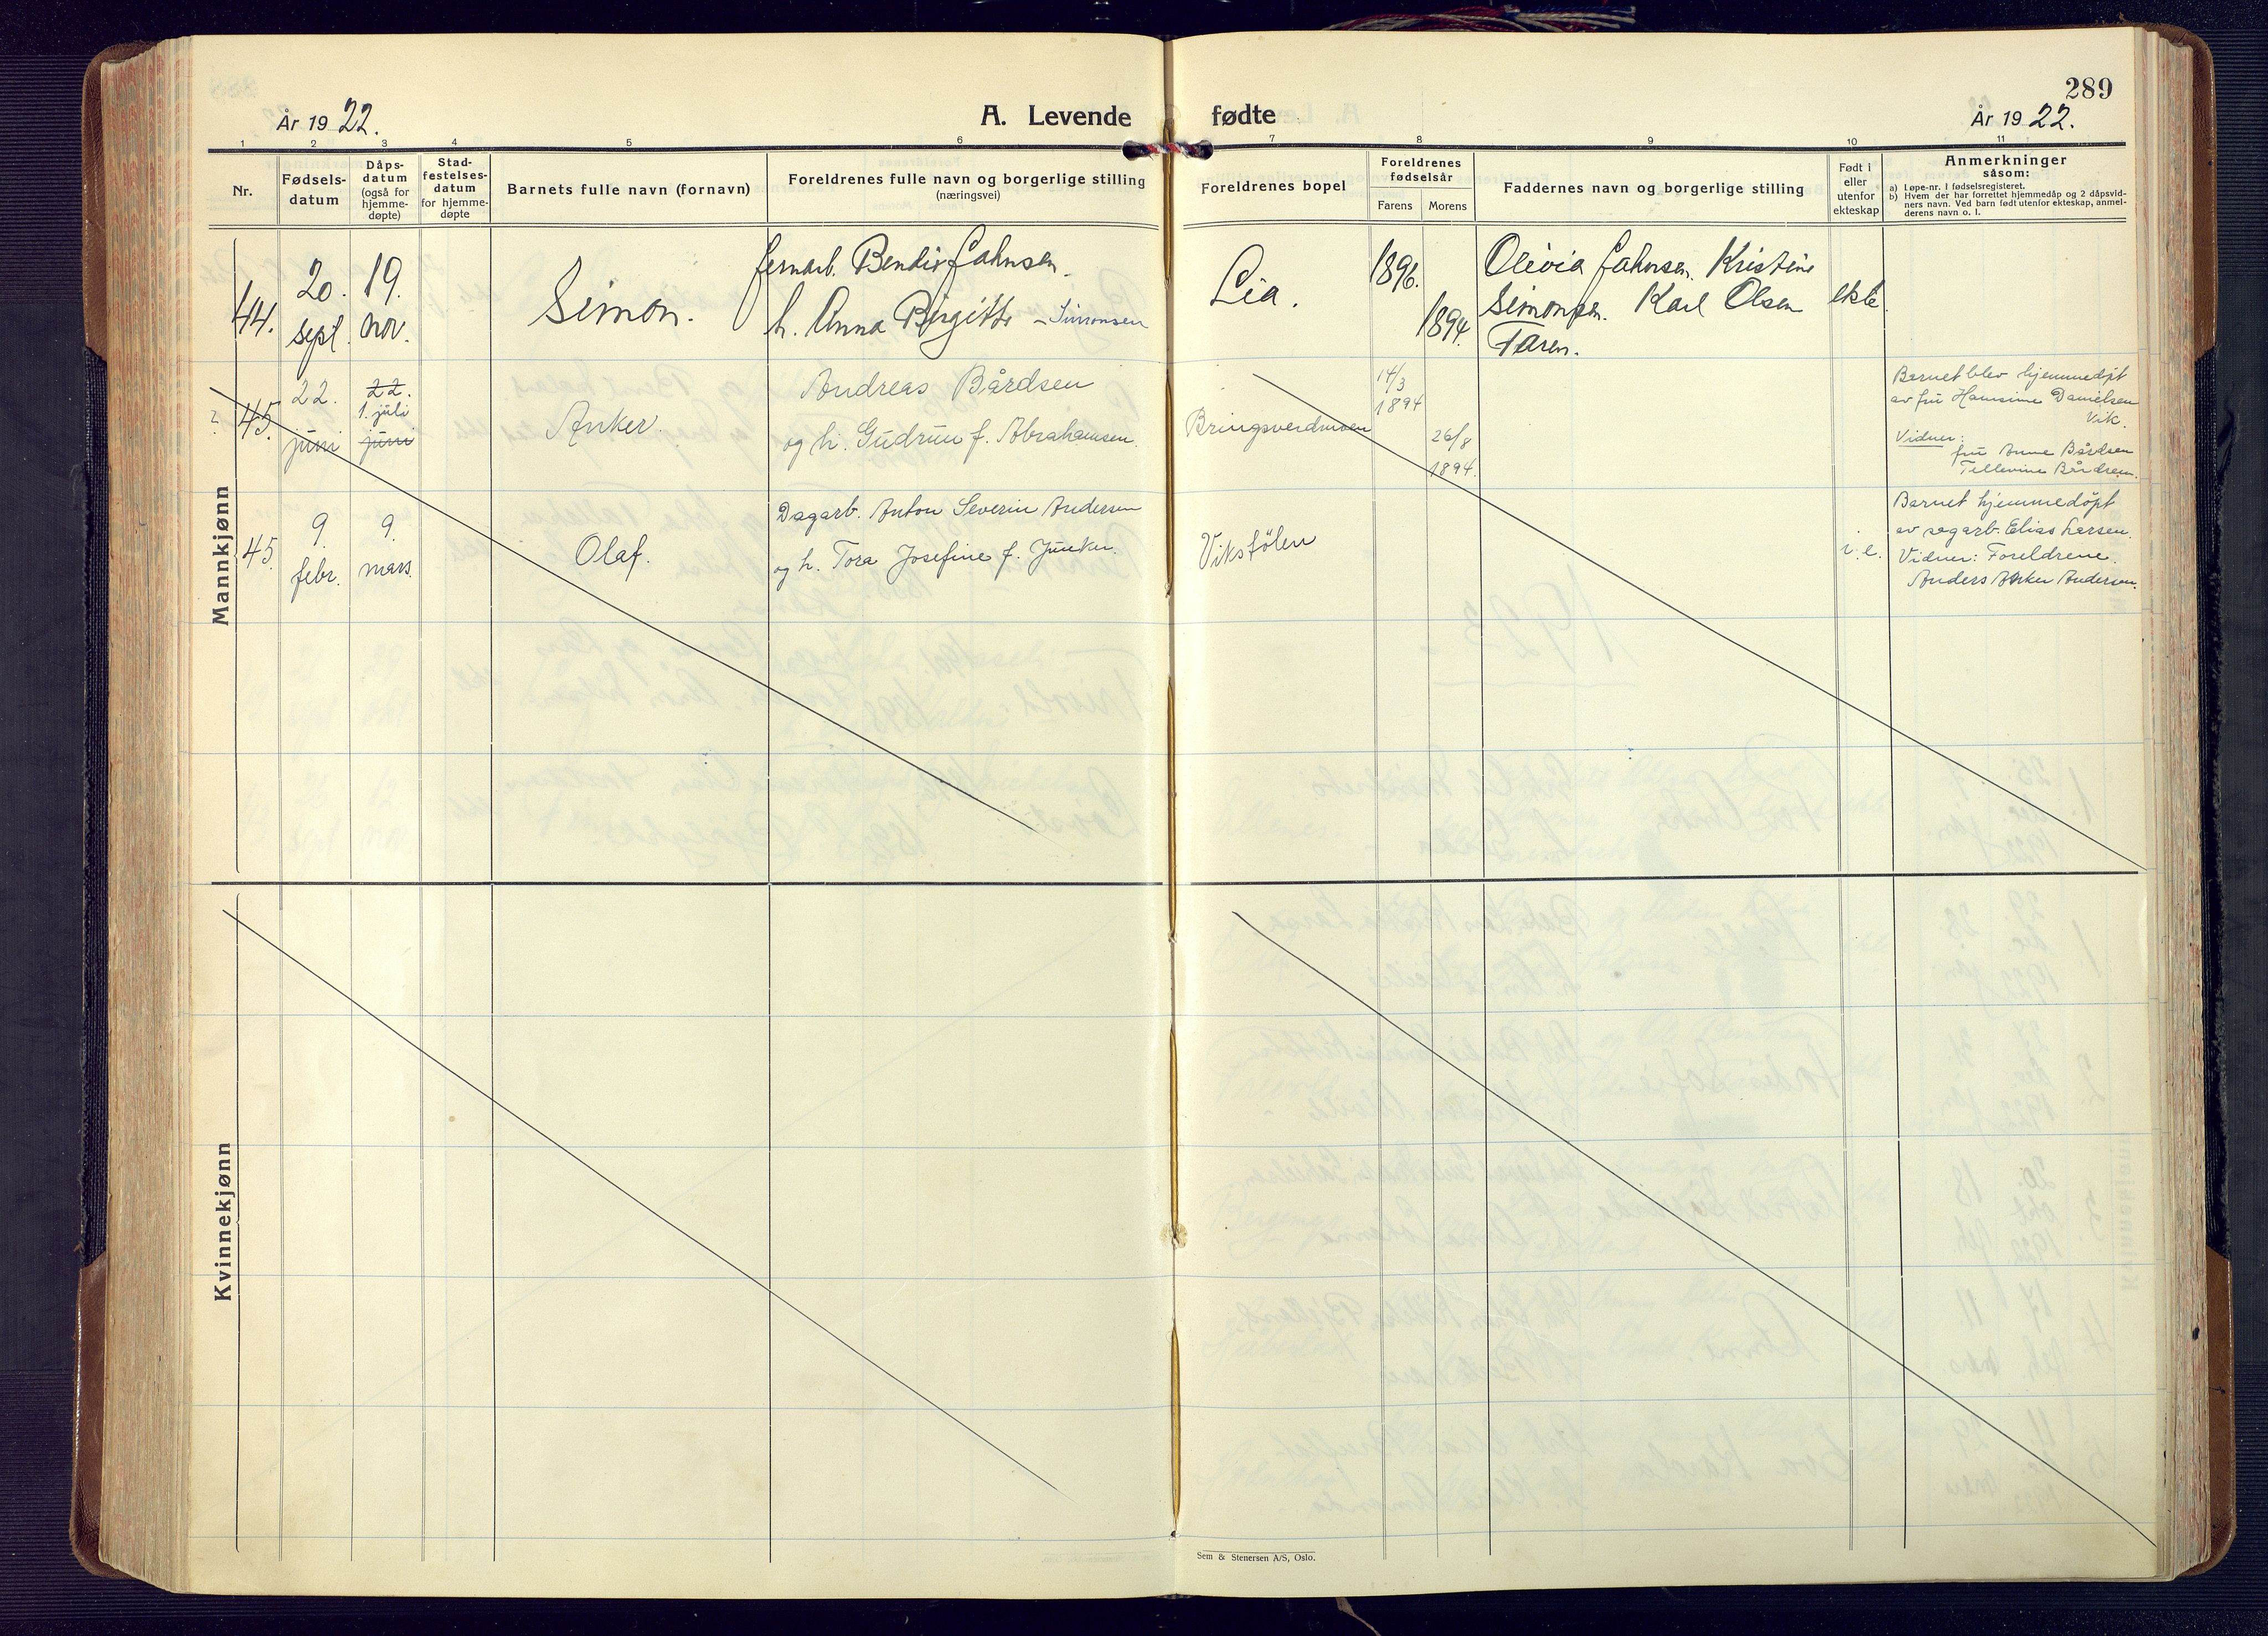 289
År 1922.
A. Levende fødte
År 1922.
1 2 3 4 5 6 7 8 9 10 11
Nr.
Fødsels-
datum
Dåps-
datum
(også for
hjemme-
døpte)
Stad-
festelses-
datum
for hjemme-
døpte
Barnets fulle navn (fornavn)
Foreldrenes fulle navn og borgerlige stilling
(næringsvei)
Foreldrenes bopel
Foreldrenes
fødselsår
Farens Morens
Faddernes navn og borgerlige stilling
Født i
eller
utenfor
ekteskap
Anmerkninger
såsom:
a) Løpe-nr. i fødselsregisteret.
b) Hvem der har forrettet hjemmedåp og 2 dåpsvid-
ners navn. Ved barn født utenfor ekteskap, anmel-
derens navn o. l.
Mannkjønn
44.
20.
sept.
19.
nov.
Simon.
Jernarb. Bendix Jahnsen.
h. Anna Birgitte - Simonsen
Lia.
1896.
1894.
Olivia Jahnsen. Kristine
Simonsen. Karl Olsen
Faren.
ekte
? 45.
22.
juni
22.
1. juli
juni
Anker.
Andreas Bårdsen
og h. Gudrun f. Abrahamsen.
Bringsverdmoen
14/3
1894
26/8
1894.
Barnet blev hjemmedøpt
av fru Hansine Danielsen
Vik.
Vidner:
fru Anne Bårdsen
Tellevine Bårdsen.
45.
9.
febr.
9.
mars.
Olaf.
Dagarb. Anton Severin Andersen
og h. Tora Josefine f. Junker.
Viksfölen
i. e.
Barnet hjemmedöpt
av sagarb. Elias Larsen.
Vidner: Foreldrene.
Anders Anker Andersen.
Kvinnekjønn
Sem & Stenersen A/S, Oslo.